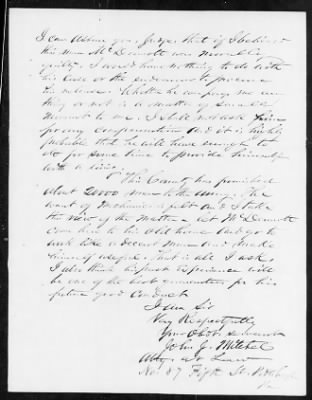 I can assure you, Judge, that if I believed
this man McDermott was morally
guilty I would have nothing to do with
his case or the endeavour to procure
his release. Whether he can pay me any
thing or not is a matter of small
moment to me. I shall not ask him
for any compensation and it is highly
probable that he will have enough to
do for some time to provide himself
with a living.
This County has furnished
about 20000 men to the army. The
want of mechanics is felt and I take
this view of the matter - let McDermott
come home to his old home and go to
work like a decent man and make
himself useful. That is all I ask.
I also think his past experience will
be one of the best guarantees for his
future good conduct
I am Sir
Very Respectfully
Your Obdt Servant
John J. Mitchel
Atty at Law
No. 87 Fifth St. Pittsburgh
Pa